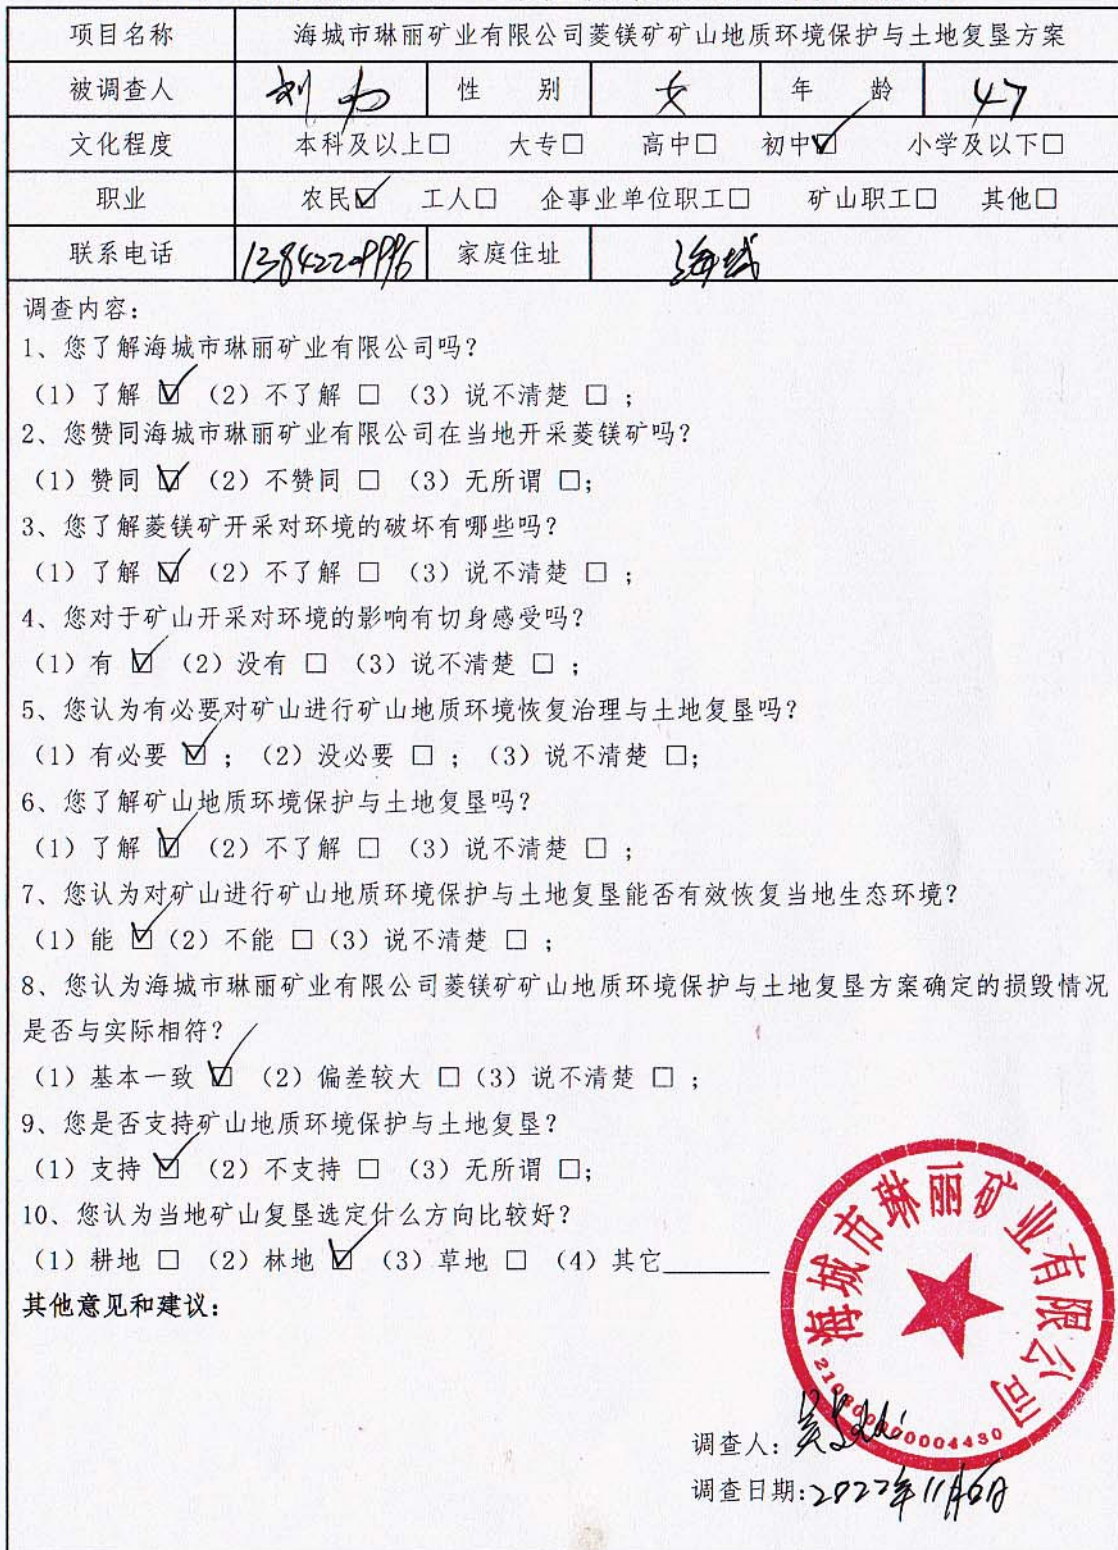 项目名称 海城市琳丽矿业有限公司菱镁矿矿山地质环境保护与土地复垦方案
被调查人 刘 性 别 女 年 龄 47
文化程度 本科及以上□ 大专□ 高中□ 初中☑ 小学及以下□
职业 农民☑ 工人□ 企事业单位职工□ 矿山职工□ 其他□
联系电话 家庭住址 海城
调查内容：
1、您了解海城市琳丽矿业有限公司吗？
（1）了解 ☑ （2）不了解 □ （3）说不清楚 □ ；
2、您赞同海城市琳丽矿业有限公司在当地开采菱镁矿吗？
（1）赞同 ☑ （2）不赞同 □ （3）无所谓 □；
3、您了解菱镁矿开采对环境的破坏有哪些吗？
（1）了解 ☑ （2）不了解 □ （3）说不清楚 □ ；
4、您对于矿山开采对环境的影响有切身感受吗？
（1）有 ☑ （2）没有 □ （3）说不清楚 □ ；
5、您认为有必要对矿山进行矿山地质环境恢复治理与土地复垦吗？
（1）有必要 ☑ ；（2）没必要 □ ；（3）说不清楚 □；
6、您了解矿山地质环境保护与土地复垦吗？
（1）了解 ☑ （2）不了解 □ （3）说不清楚 □ ；
7、您认为对矿山进行矿山地质环境保护与土地复垦能否有效恢复当地生态环境？
（1）能 ☑（2）不能 □（3）说不清楚 □ ；
8、您认为海城市琳丽矿业有限公司菱镁矿矿山地质环境保护与土地复垦方案确定的损毁情况
是否与实际相符？
（1）基本一致 ☑ （2）偏差较大 □（3）说不清楚 □ ；
9、您是否支持矿山地质环境保护与土地复垦？
（1）支持 ☑ （2）不支持 □ （3）无所谓 □；
10、您认为当地矿山复垦选定什么方向比较好？
（1）耕地 □ （2）林地 ☑ （3）草地 □ （4）其它________
其他意见和建议：
海城市琳丽矿业有限公司
调查人：
调查日期：2022年11月6日